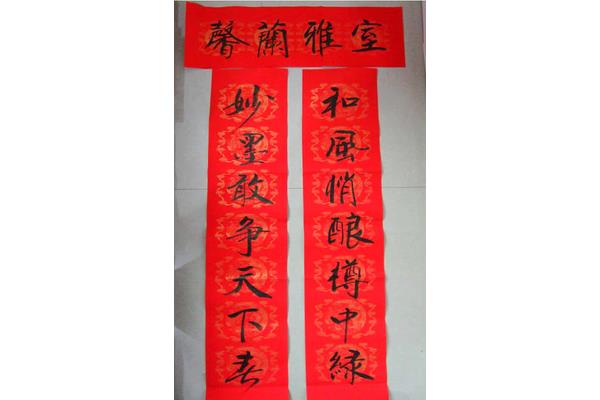 室雅蘭馨
和風悄釀樽中緑
妙墨敢争天下春